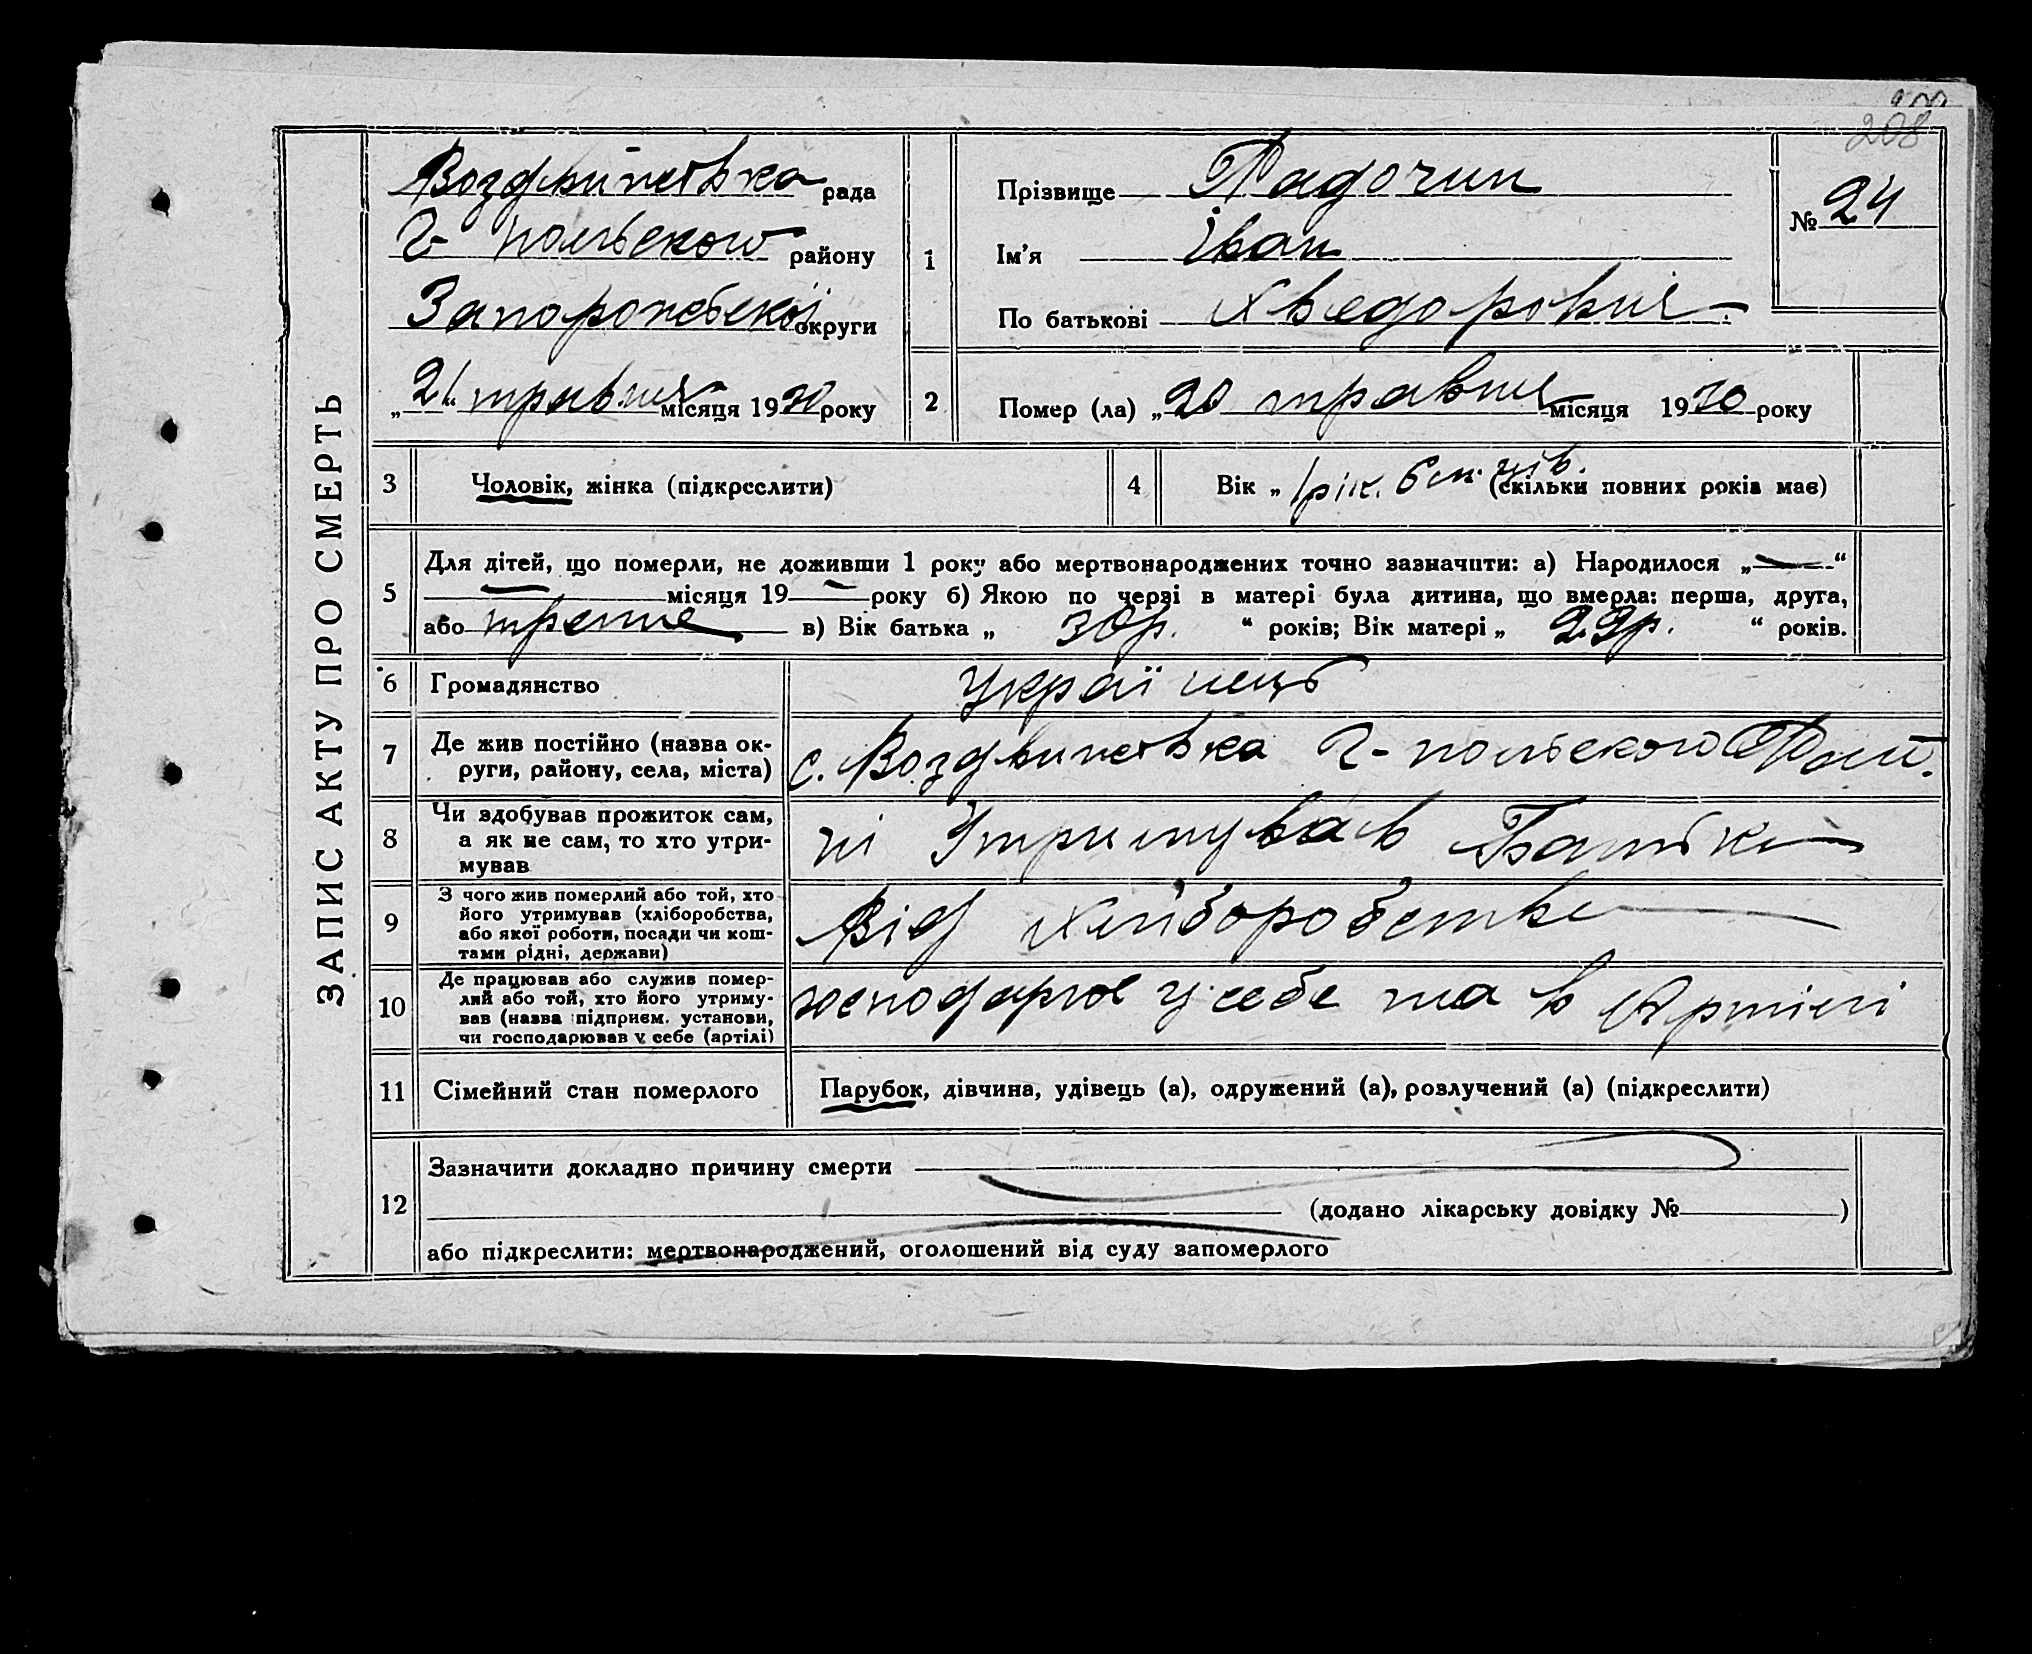 208
ЗАПИС АКТУ ПРО СМЕРТЬ
Воздвижівка рада
Г-польского району
Запорожської округи
„21“ травня місяця 1930 року
1
Прізвище Падочин
Ім'я Іван
По батькові Хведорович
№ 24
2
Помер (ла) „20 травня місяця 1930 року
3
Чоловік, жінка (підкреслити)
4
Вік „ 1 рік. 6 м. (скільки повних років має)
5
Для дітей, що померли, не доживши 1 року або мертвонароджених точно зазначити: а) Народилося „—“
— місяця 19— року б) Якою по черзі в матері була дитина, що вмерла: перша, друга,
або третя в) Вік батька „ 30р. “ років; Вік матері „ 29р. “ років.
6
Громадянство
Українець
7
Де жив постійно (назва ок-
руги, району, села, міста)
с. Воздвижівка Г-польского Рай.
8
Чи здобував прожиток сам,
а як не сам, то хто утри-
мував
ні Утримував Батько
9
З чого жив померлий або той, хто
його утримував (хліборобства,
або якої роботи, посади чи кош-
тами рідні, держави)
Від хліборобства
10
Де працював або служив помер-
лий або той, хто його утриму-
вав (назва підприєм. установи,
чи господарював у себе (артілі)
господарює у себе та в Артілі
11
Сімейний стан померлого
Парубок, дівчина, удівець (а), одружений (а), розлучений (а) (підкреслити)
12
Зазначити докладно причину смерти
(додано лікарську довідку № )
або підкреслити: мертвонароджений, оголошений від суду запомерлого